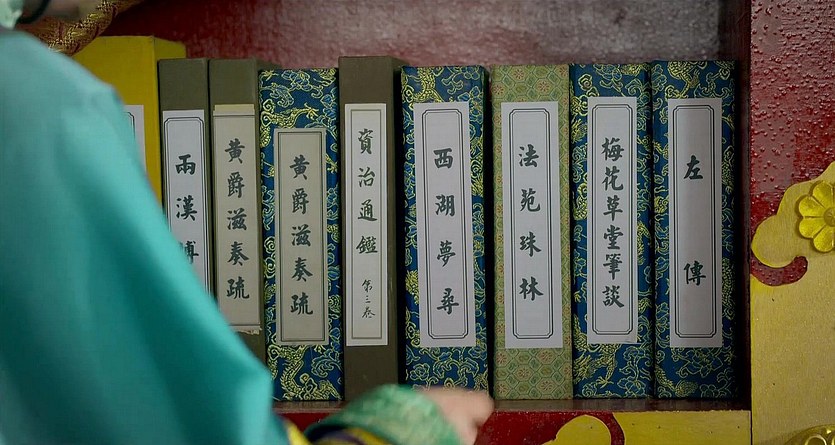 兩漢博
黃爵滋奏疏
黃爵滋奏疏
資治通鑑 第三卷
西湖夢尋
法苑珠林
梅花草堂筆談
左傳